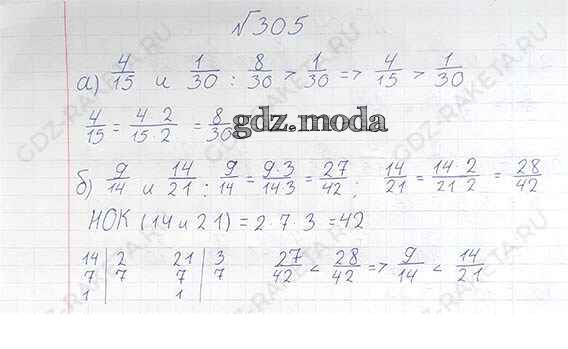 №305
а) 4/15 и 1/30 : 8/30 > 1/30 => 4/15 > 1/30
4/15 = 4 2/15 2 = 8/30
gdz.moda
б) 9/14 и 14/21 : 9/14 = 9·3/14 3 = 27/42 ; 14/21 = 14·2/21 2 = 28/42
НОК (14 и 21) = 2·7·3 = 42
14 | 2 21 | 3 27/42 < 28/42 => 9/14 < 14/21
7 | 7 7 | 7
1 | 1 |
GDZ-RAKETA.RU